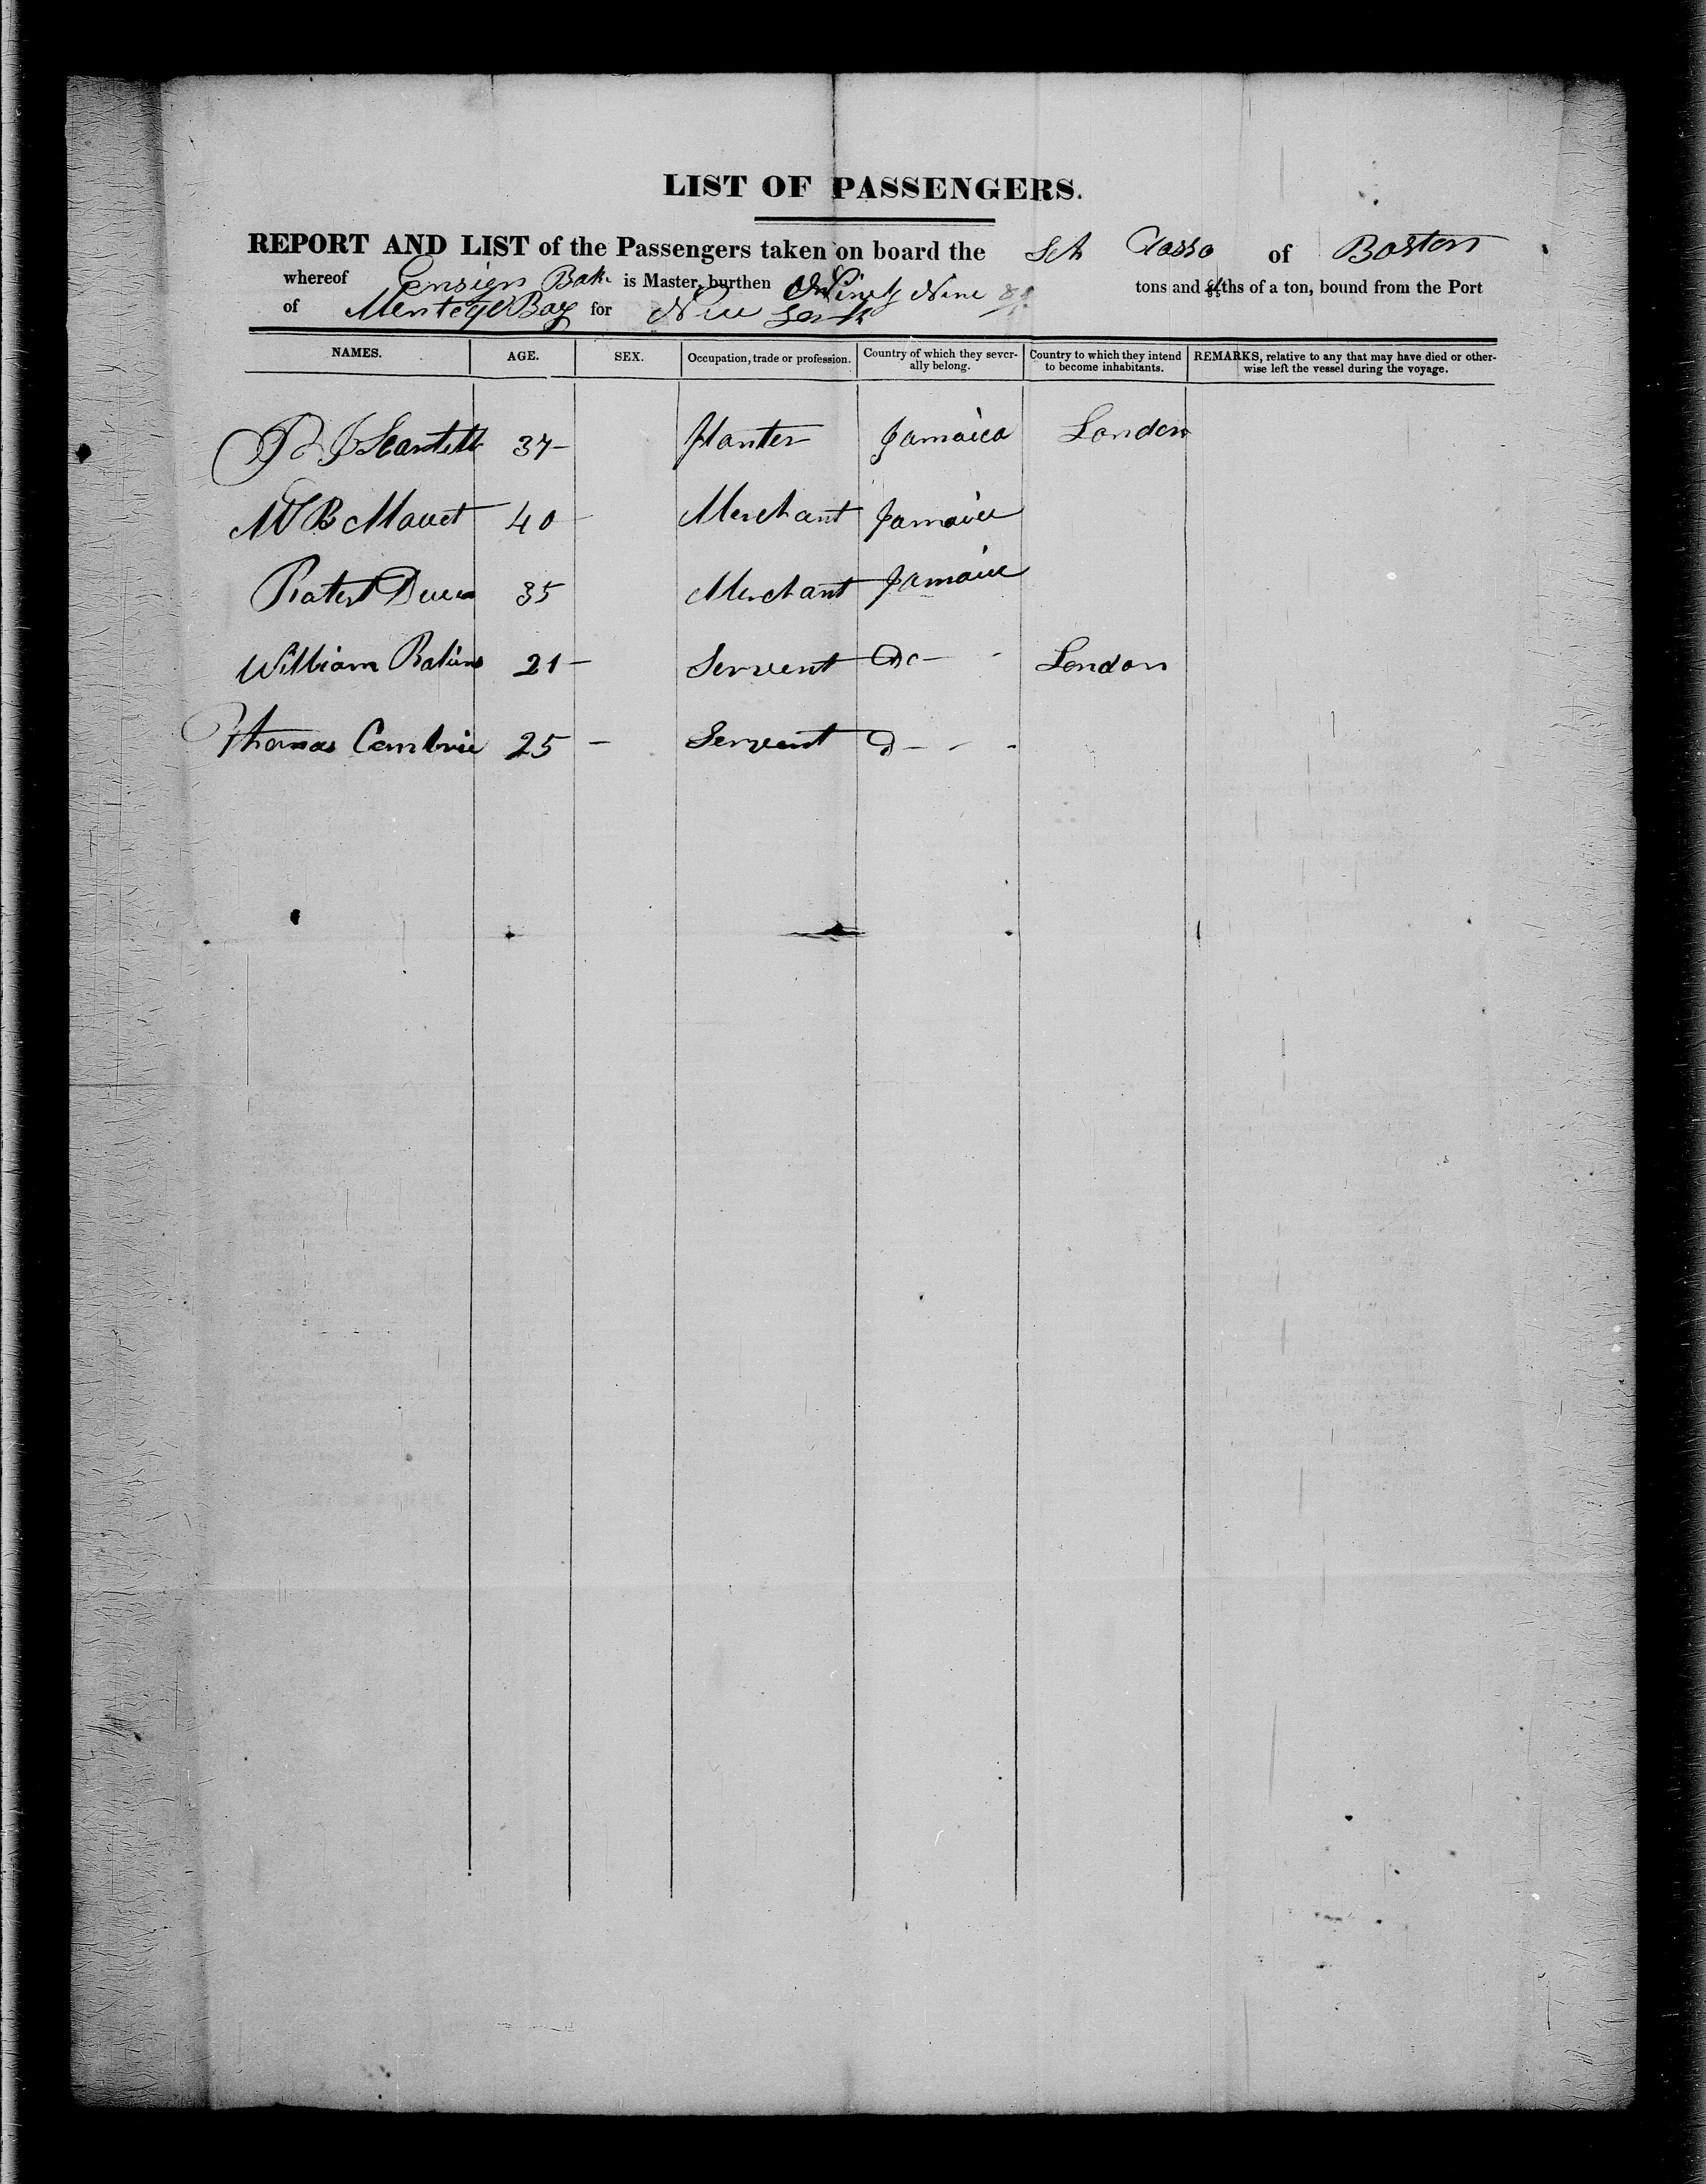 LIST OF PASSENGERS.
REPORT AND LIST of the Passengers taken on board the Sch of Boston
whereof Ensign Bak is Master, burthen Ninety Nine tons and ths of a ton, bound from the Port
of Montego Bay for New York
NAMES. AGE. SEX. Occupation, trade or profession. Country of which they severally belong. Country to which they intend to become inhabitants. REMARKS, relative to any that may have died or otherwise left the vessel during the voyage.
37 - Planter Jamaica London
W B 40 - Merchant Jamaica
35 Merchant Jamaica
William 21 - Servent Do - - London
Thomas 25 - Servent D - - -